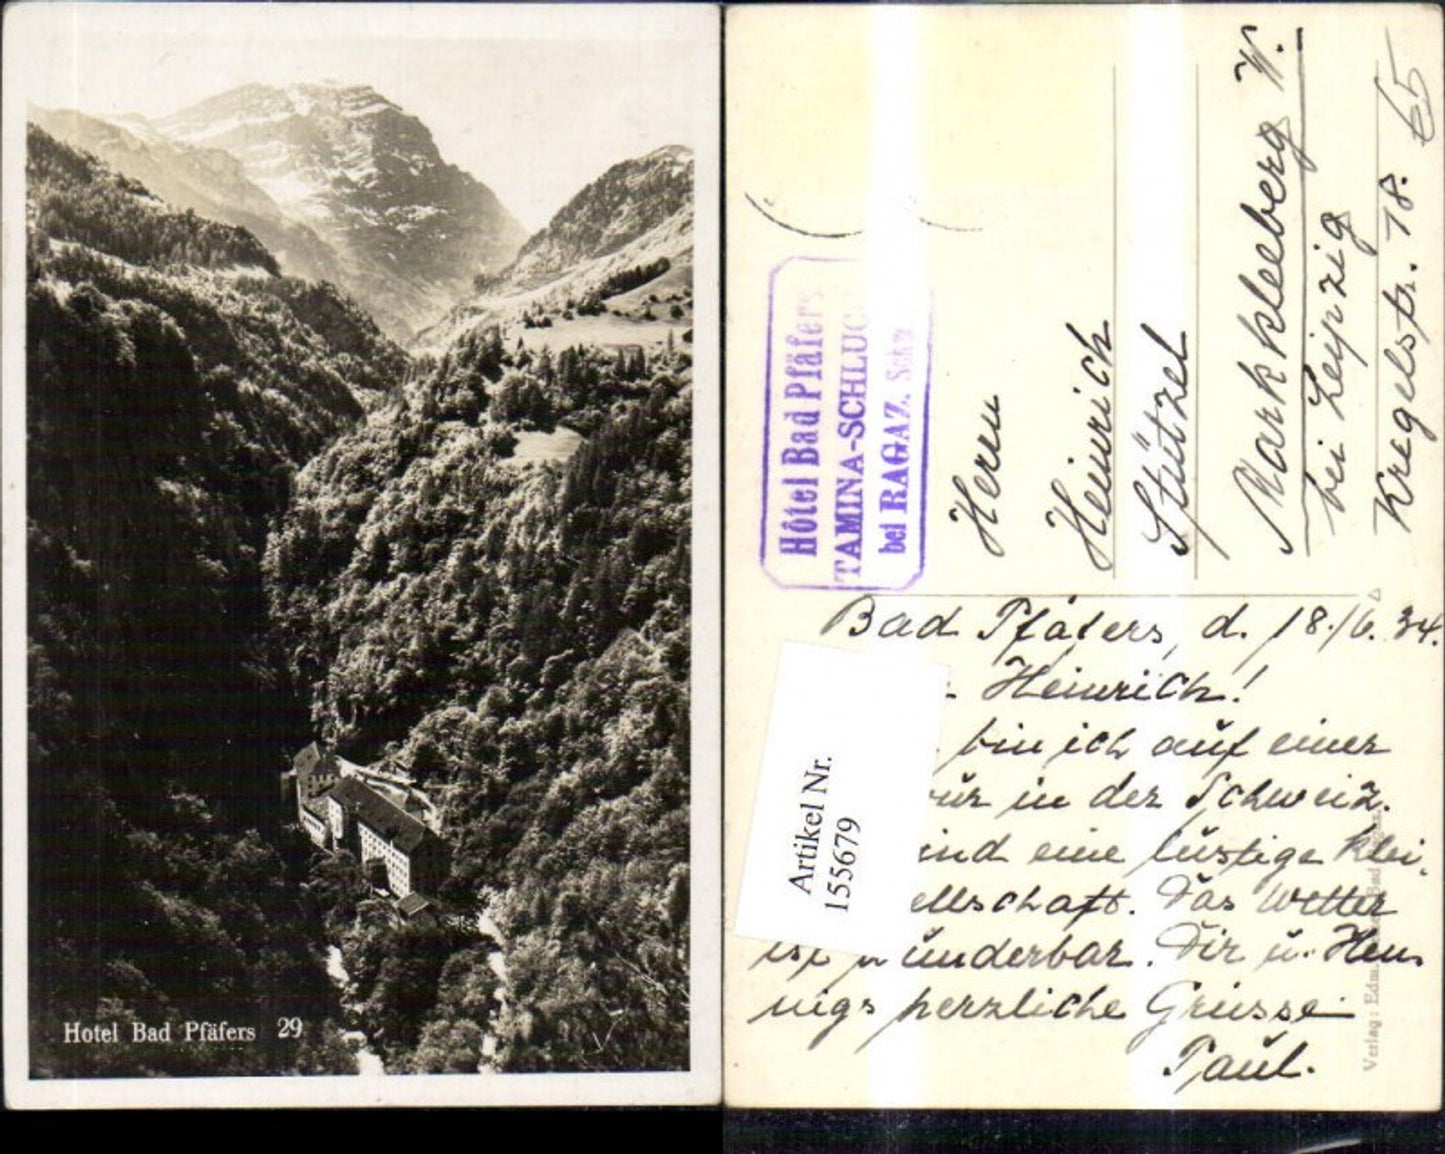 Hotel Bad Pfäfers 29
Hôtel Bad Pfäfers
TAMINA-SCHLUC
bei RAGAZ.
Herrn
Heinrich
Stützel
Markkleeberg W.
bei Leipzig
Kregelstr. 78. 65
Bad Pfäfers, d. 18./6. 34.
Heinrich!
bin ich auf einer
in der Schweiz.
ind eine lustige klei
ellschaft. Das Wetter
ist wunderbar. Dir u. Hen
nigs herzliche Grüsse
Paul.
Artikel Nr.
155679
Verlag: Edm.
Bad